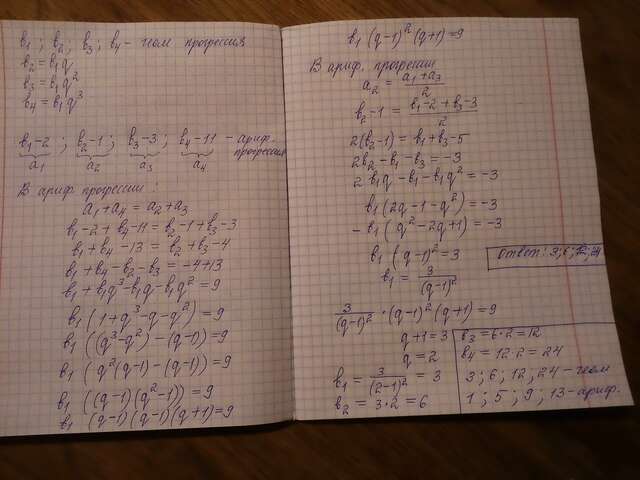 b₁ ; b₂ ; b₃ ; b₄ - геом прогрессия
b₂ = b₁q
b₃ = b₁q²
b₄ = b₁q³
b₁-2 ; b₂-1 ; b₃-3 ; b₄-11 - ариф. прогрессия
a₁ a₂ a₃ a₄
В ариф прогрессии :
a₁ + a₄ = a₂ + a₃
b₁-2 + b₄-11 = b₂-1 + b₃-3
b₁ + b₄ -13 = b₂ + b₃ -4
b₁ + b₄ - b₂ - b₃ = -4+13
b₁ + b₁q³ - b₁q - b₁q² = 9
b₁ (1 + q³ - q - q²) = 9
b₁ ((q³-q²) - (q-1)) = 9
b₁ (q²(q-1) - (q-1)) = 9
b₁ ((q-1)(q²-1)) = 9
b₁ (q-1)(q-1)(q+1) = 9
b₁ (q-1)² (q+1) = 9
В ариф. прогрессии
a₂ = (a₁ + a₃)/2
b₂-1 = (b₁-2 + b₃-3)/2
2(b₂-1) = b₁ + b₃ -5
2b₂ - b₁ - b₃ = -3
2 b₁q - b₁ - b₁q² = -3
b₁ (2q - 1 - q²) = -3
- b₁ (q² - 2q + 1) = -3
b₁ (q-1)² = 3
b₁ = 3/(q-1)²
Ответ: 3; 6; 12; 24
3/(q-1)² · (q-1)² (q+1) = 9
q+1 = 3
q = 2
b₁ = 3/(2-1)² = 3
b₂ = 3·2 = 6
b₃ = 6·2 = 12
b₄ = 12·2 = 24
3 ; 6 ; 12 ; 24 - геом
1 ; 5 ; 9 ; 13 - ариф.